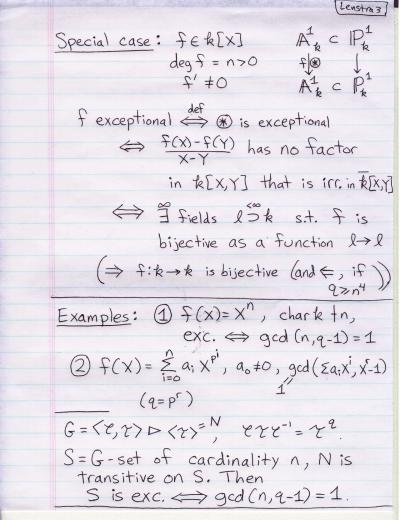 Lenstra 3
Special case: f ∈ k[X]    𝔸¹_k ⊂ ℙ¹_k
deg f = n > 0    f↓⊛  ↓
f' ≠ 0    𝔸¹_k ⊂ ℙ¹_k
f exceptional ⟺(def) ⊛ is exceptional
⟺ (f(X)-f(Y))/(X-Y) has no factor
in k[X,Y] that is irr. in k̄[X,Y]
⟺ ∃^∞ fields l ⊃^{<∞} k s.t. f is
bijective as a function l→l
(⇒ f: k→k is bijective (and ⇐, if
q ≥ n⁴))
Examples: ① f(X)=Xⁿ, char k ∤ n,
exc. ⟺ gcd(n,q-1)=1
② f(X)= Σ_{i=0}^{n} a_i X^{p^i}, a_0≠0, gcd(Σa_iX^i, X^r-1)
(q=p^r)    1
G=⟨σ,τ⟩ ▷ ⟨τ⟩ = N, στσ⁻¹ = τ^q.
S=G-set of cardinality n, N is
transitive on S. Then
S is exc. ⟺ gcd(n,q-1)=1.